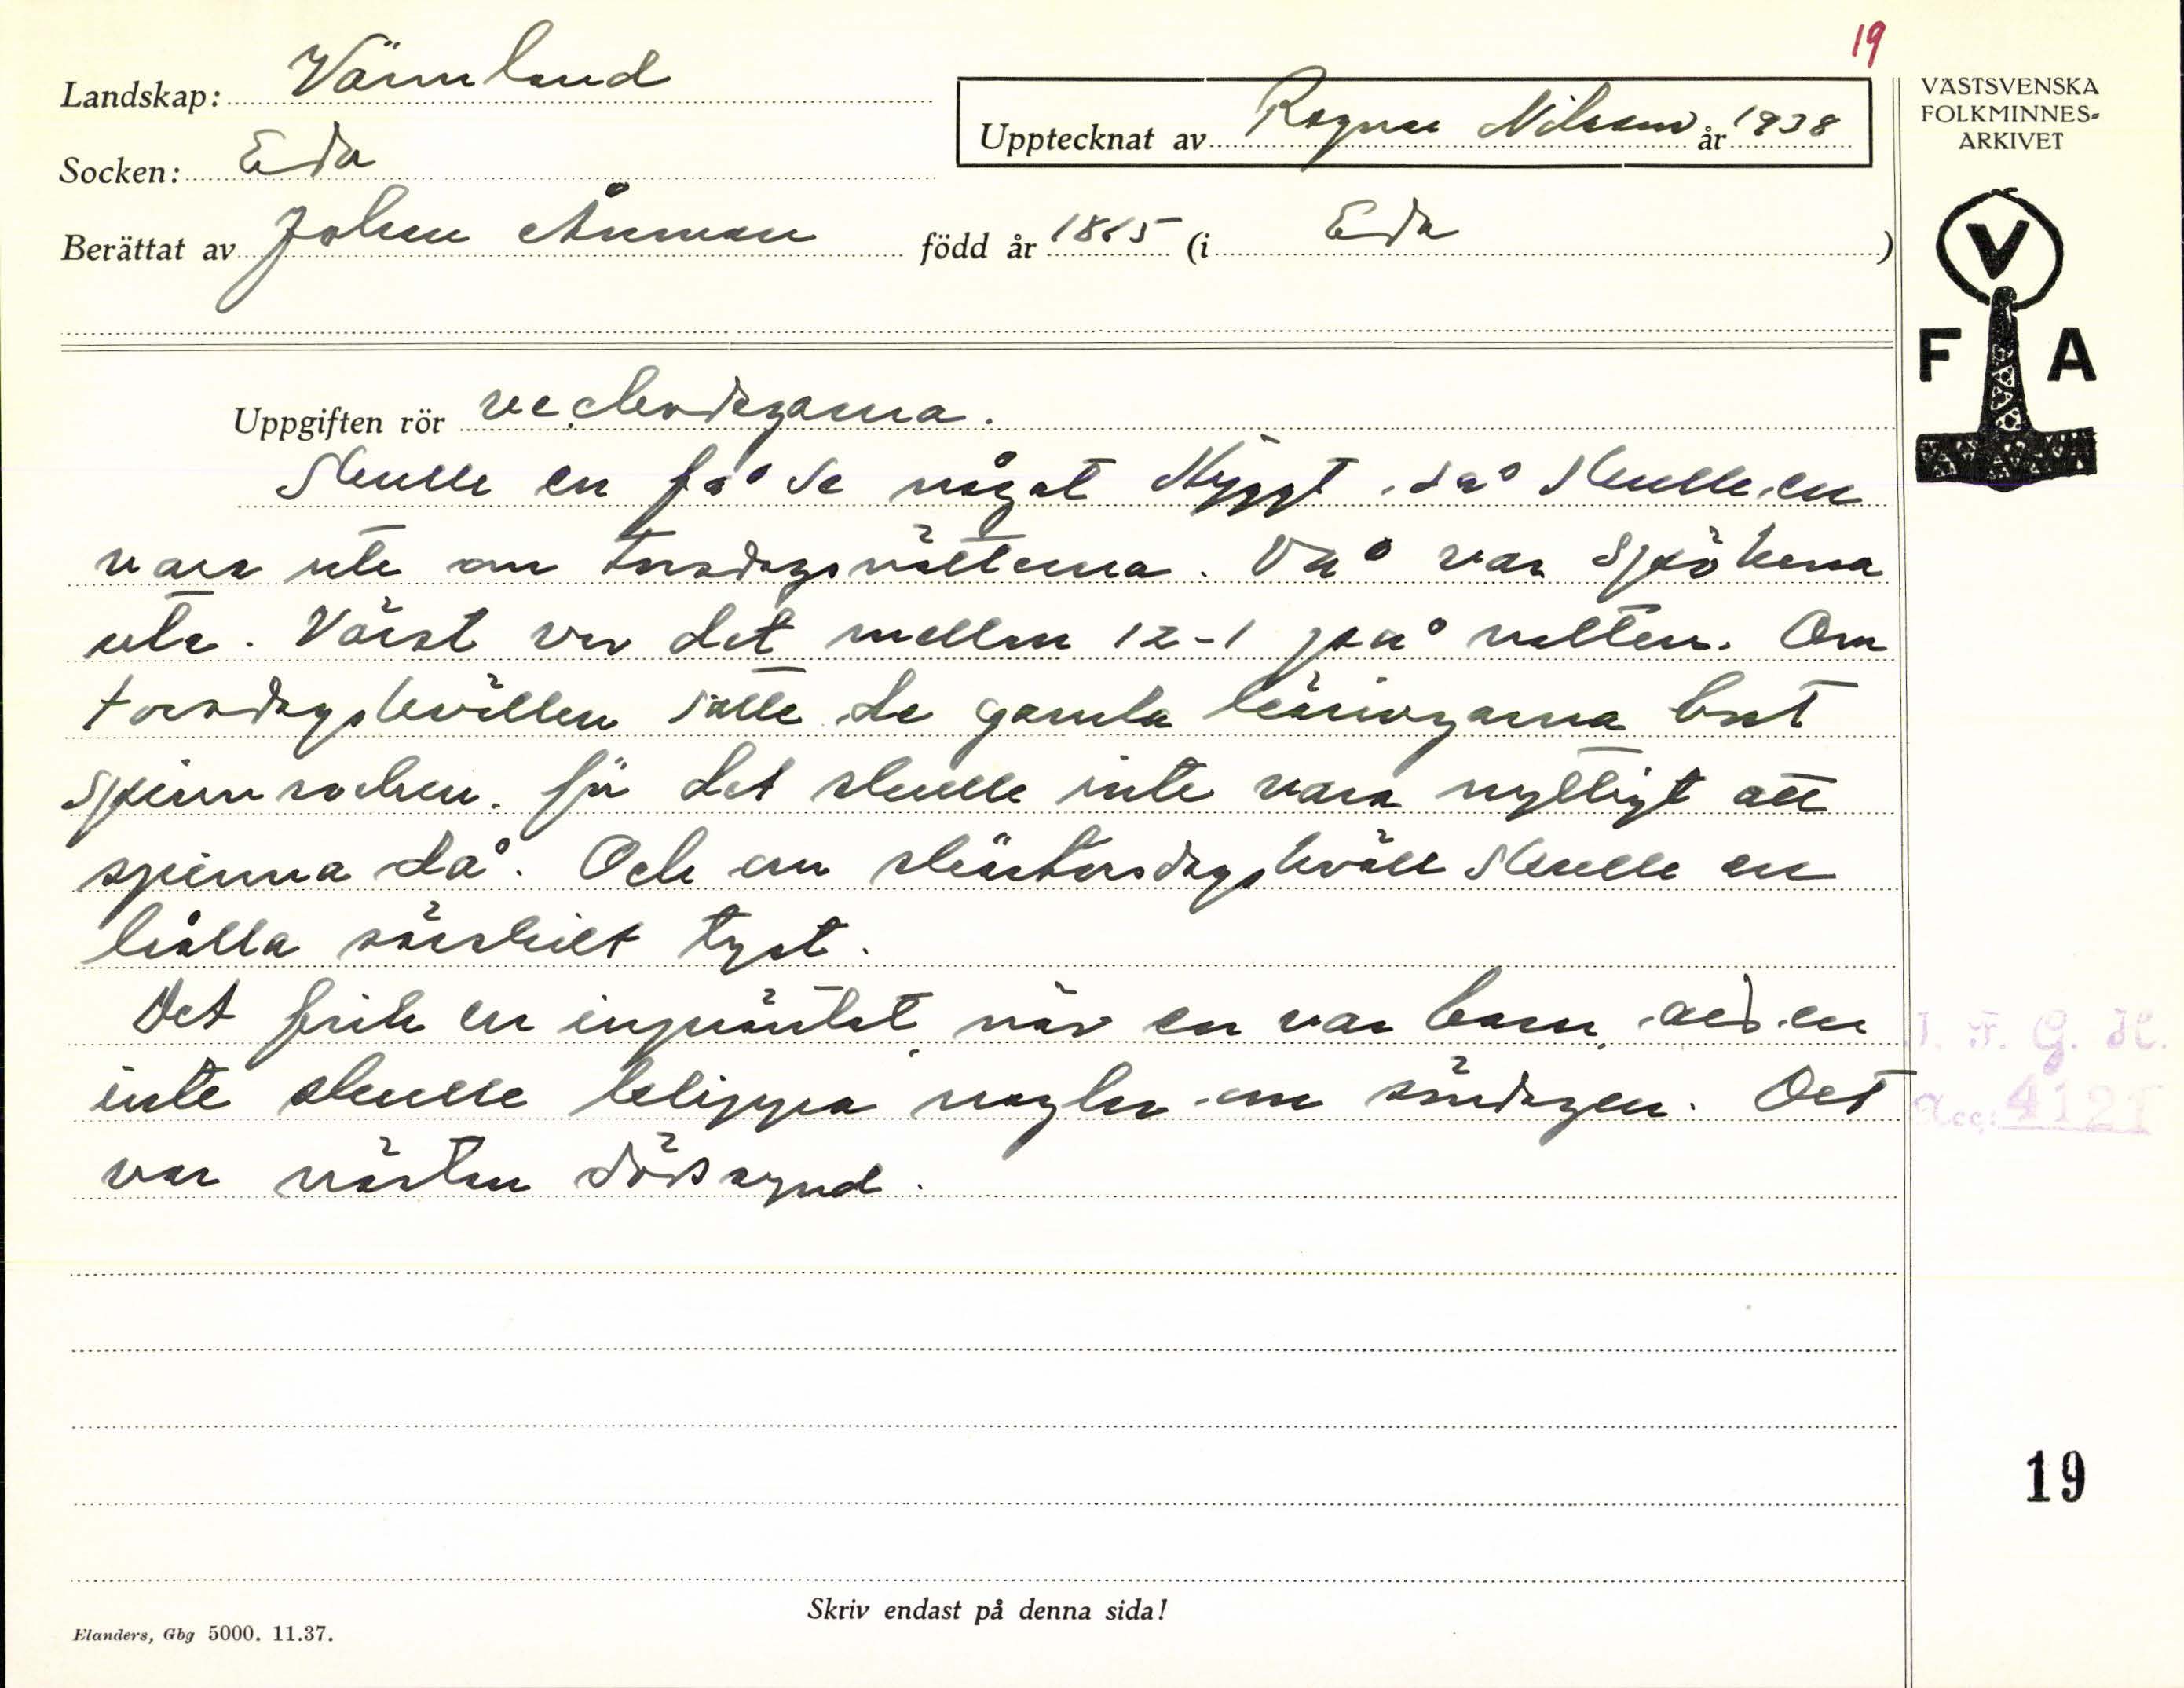 19
Landskap: Värmland
Upptecknat av Ragnar Nilsson år 1938
VÄSTSVENSKA
FOLKMINNES-
ARKIVET
Socken: Eda
Berättat av Johan Ånman född år 1865 (i Eda)
V
F A
Uppgiften rör veckodagarna.
Skulle en få se något styggt, så skulle en
vara ute om torsdagsnätterna. Då var spökena
ute. Värst var det mellan 12-1 på natten. Om
torsdagskvällen satte de gamla käringarna bort
spinnrocken. för det skulle inte vara nyttigt att
spinna då. Och om skärtorsdagskväll skulle en
hålla särskilt tyst.
Det fick en inpräntat, när en var barn, att en
inte skulle klippa naglar om söndagen. Det
var nästan dödssynd.
I. F. G. H.
Acc: 4121
19
Skriv endast på denna sida!
Elanders, Gbg 5000. 11.37.